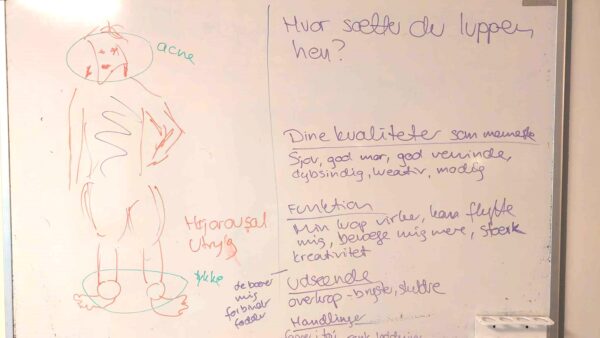 acne
Højarousal
Utryg
tykke
de bærer
mig
fødder
Hvor sætter du luppen
hen?
Dine kvaliteter som menneske
Sjov, god mor, god veninde,
dybsindig, kreativ, modig
Funktion
Min krop virker, kan flytte
mig, bevæge mig mere, stærk
kreativitet
Udseende
overkrop - bryster, skuldre
Handlinger